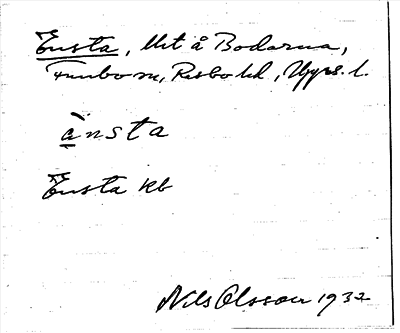 Ensta, lht å Bodarna,
Funbo sn, Rasbo hd, Upps. l.
ànsta
Ensta kb
Nils Olsson 1932